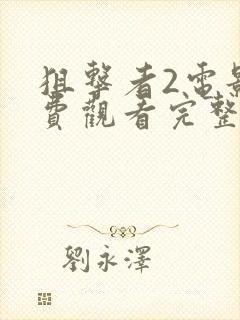 狙擊者2電影
費觀看完整
劉永澤